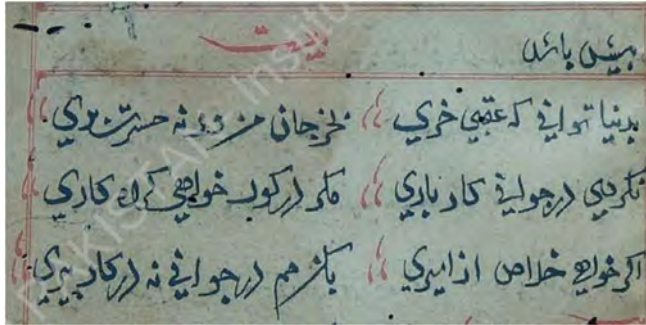 بیت
بدنیا توانی که عقبی خری بخر جان من ورنه حسرت بری
نکردی در جوانی کار باری مگر در کور خواهی کرد کاری
اکر خواهی خلاص از امیری در جوانی نه در کار پیری